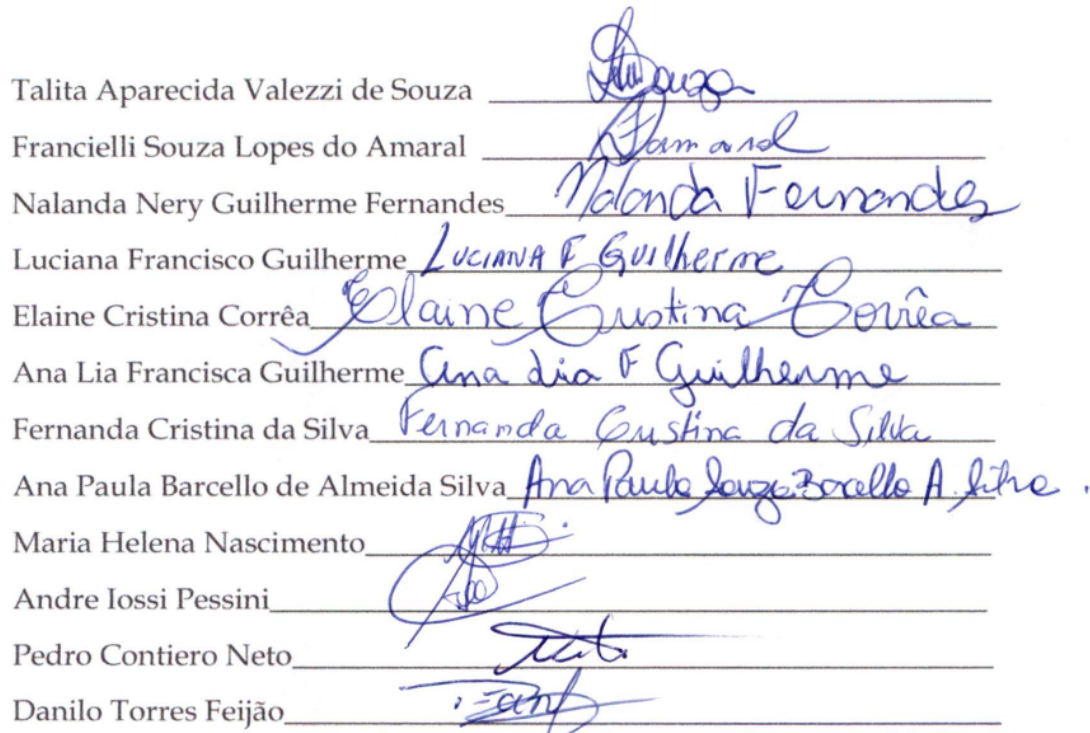 Talita Aparecida Valezzi de Souza Souza
Francielli Souza Lopes do Amaral Famaral
Nalanda Nery Guilherme Fernandes Nalanda Fernandes
Luciana Francisco Guilherme LUCIANA F Guilherme
Elaine Cristina Corrêa Elaine Cristina Corrêa
Ana Lia Francisca Guilherme Ana Lia F Guilherme
Fernanda Cristina da Silva Fernanda Cristina da Silva
Ana Paula Barcello de Almeida Silva Ana Paula Souza Barcello A. Silva.
Maria Helena Nascimento
Andre Iossi Pessini
Pedro Contiero Neto
Danilo Torres Feijão